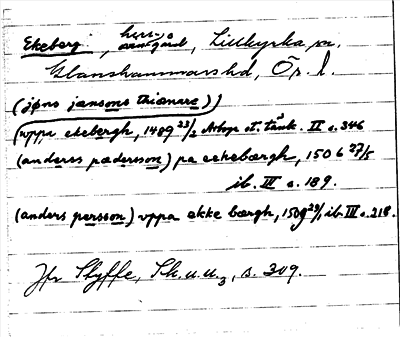 Ekeberg, herrg., Lillkyrka sn,
Glanshammars hd, Ör. l.
(jøns jansons thiænare))
(vppa ekebergh, 1489 23/2 Arboga st. tänk. II s. 346
(anderss pædersson) pa eekebærgh, 1506 27/5
ib. III s. 189.
(anders persson) vppa ekke bærgh, 1508 ib. III s. 218.
Jfr Styffe, Sk.u.u.3, s. 309.